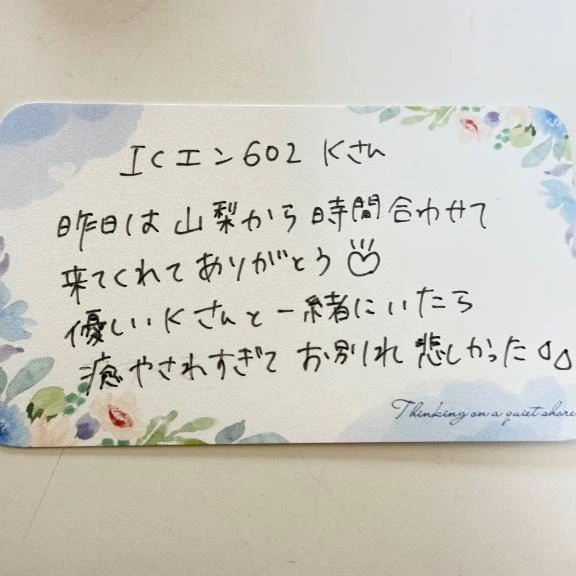 ICエン602 Kさん
昨日は山梨から時間合わせて
来てくれてありがとう
優しいKさんと一緒にいたら
癒やされすぎてお別れ悲しかった
Thinking on a quiet shore